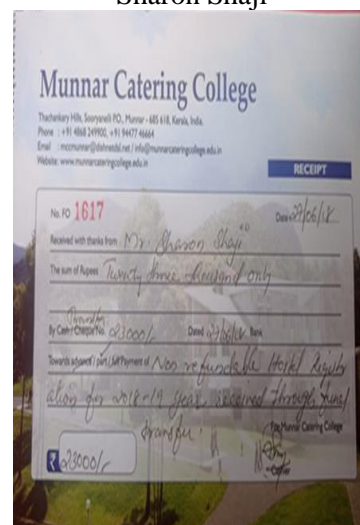 Sharon Shaji
Munnar Catering College
Thachankary Hills, Sooryanelli P.O., Munnar - 685 618, Kerala, India.
Phone : +91 4868 249900, +91 94477 46664
Email : mccmunnar@dahnetdsl.net / info@munnarcateringcollege.edu.in
Website: www.munnarcateringcollege.edu.in
RECEIPT
No. FO 1617 Date 27/06/18
Received with thanks from Mr. Sharon Shaji
The sum of Rupees Twenty three thousand only
Transfer
By Cash / Cheque No. 23000/- Dated 27/06/18 Bank
Towards advance / part / full Payment of Non refundable Hostel Registr
ation for 2018-19 year, received through fund
transfer.
For Munnar Catering College
₹ 23000/-
Cashier